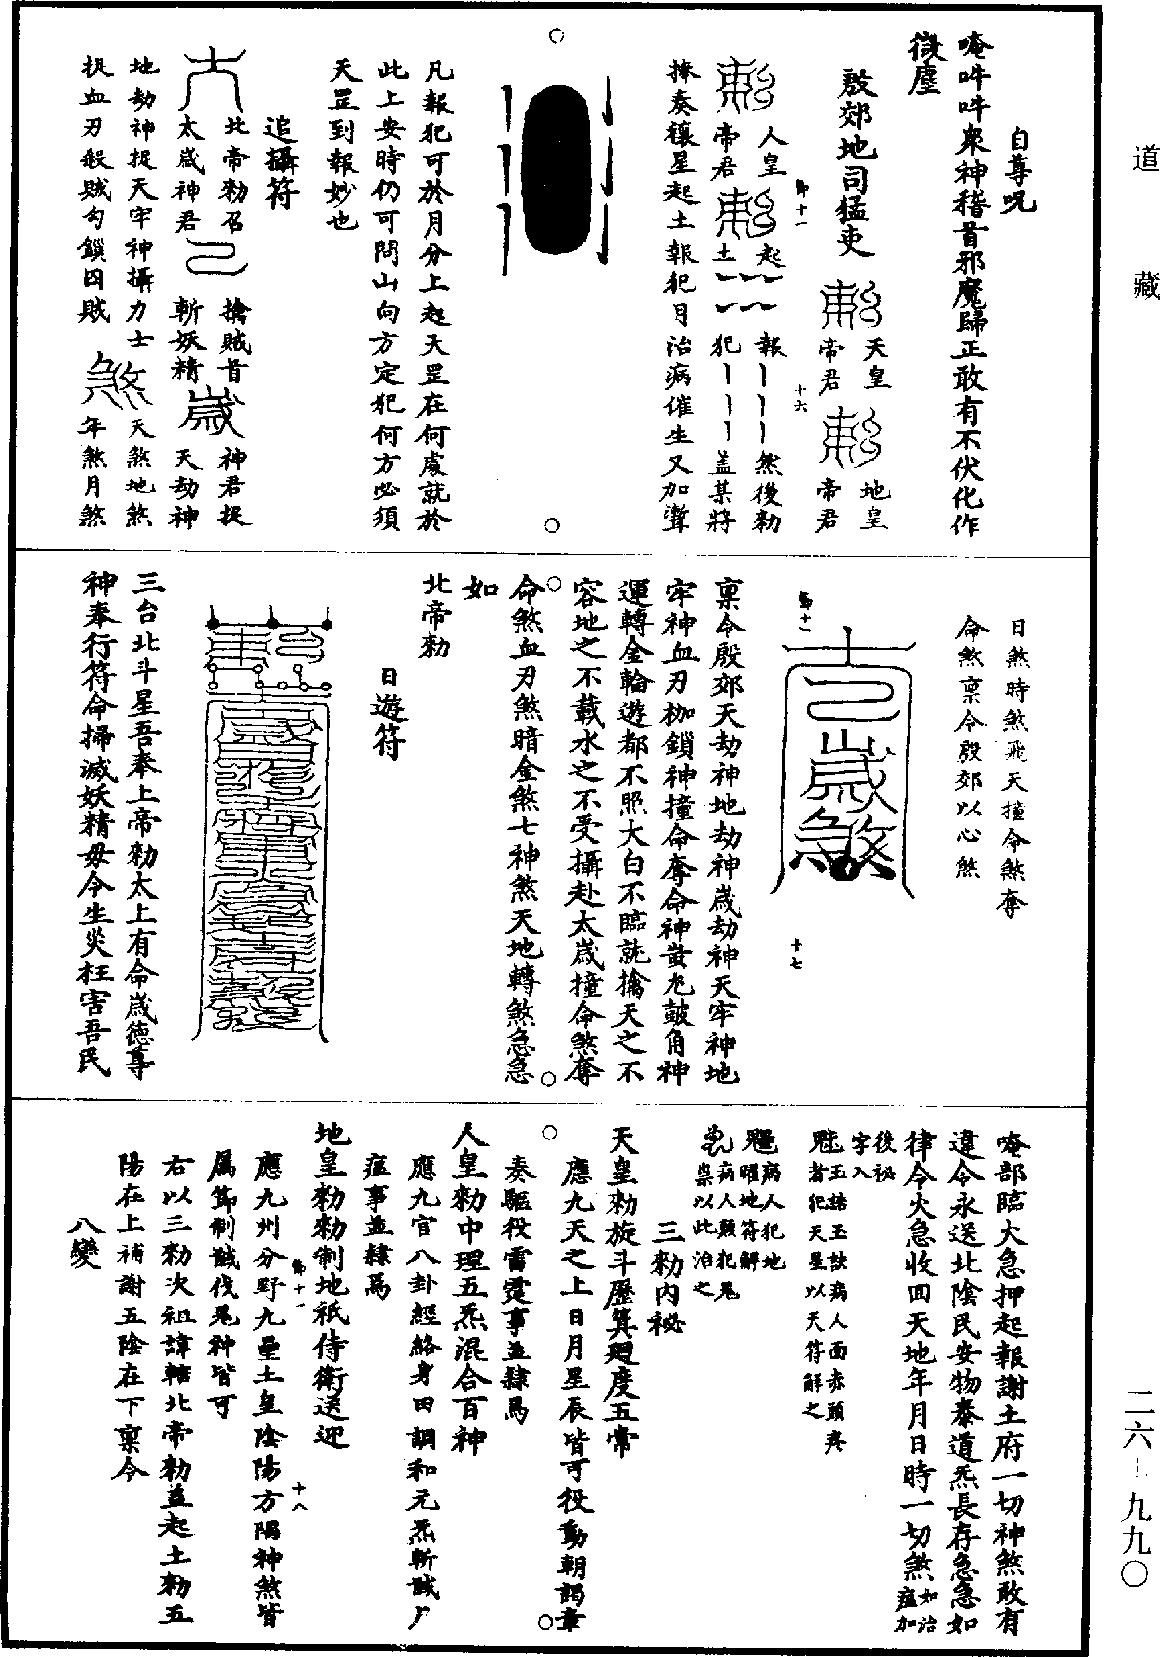 道藏
自尊咒
唵吽吽衆神稽首邪魔歸正敢有不伏化作
微塵
殷郊地司猛吏
勅天皇帝君
勅地皇帝君
節十一
十六
勅人皇帝君
勅起土
報犯
然後勅
盖某將
捧奏禳星起土報犯月治病催生又加聻
凡報犯可於月分上起天罡在何處就於
此上安時仍可問山向方定犯何方必須
天罡到報妙也
追攝符
北帝勅召
太歲神君
擒賊首
斬妖精
歲
神君捉
天劫神
地劫神捉天牢神攝力士
捉血刃殺賊勾鎖囚賊
煞
天煞地煞
年煞月煞
日煞時煞飛天撞命煞奪
命煞禀令殷郊以心煞
節十一
歲
煞
十七
禀令殷郊天劫神地劫神歲劫神天牢神地
牢神血刃枷鎖神撞命奪命神蚩尤鼓角神
運轉金輪遊都不照大白不臨就擒天之不
容地之不載水之不受攝赴太歲撞命煞奪
命煞血刃煞暗金煞七神煞天地轉煞急急
如
北帝勅
日遊符
三台北斗星吾奉上帝勅太上有命歲德尊
神奉行符命掃滅妖精毋令生災枉害吾民
唵部臨大急押起報謝土府一切神煞敢有
違令永送北陰民安物泰道炁長存急急如
律令火急收回天地年月日時一切煞如治瘟加
後祕
字入
玉誥玉訣病人面赤頭疼
者犯天星以天符解之
病人犯地
曜地符解
病人顛犯鬼
祟以此治之
三勅内祕
天皇勅旋斗歷箕廻度五常
應九天之上日月星辰皆可役動朝謁章
奏驅役雷霆事並隸焉
人皇勅中理五炁混合百神
應九官八卦經絡身田調和元炁斬馘广
瘟事並隸焉
地皇勅勅制地祇侍衛送迎
應九州分野九壘土皇陰陽方隅神煞皆
屬節制馘伐鬼神皆可
節十一
十八
右以三勅次祖諱轄北帝勅並起土勅五
陽在上補謝五陰在下禀令
八變
二六-九九〇